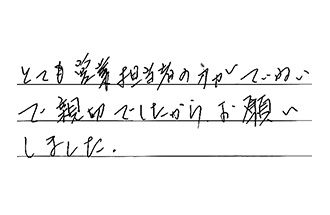 とても営業担当者の方がていねい
で親切でしたからお願い
しました.